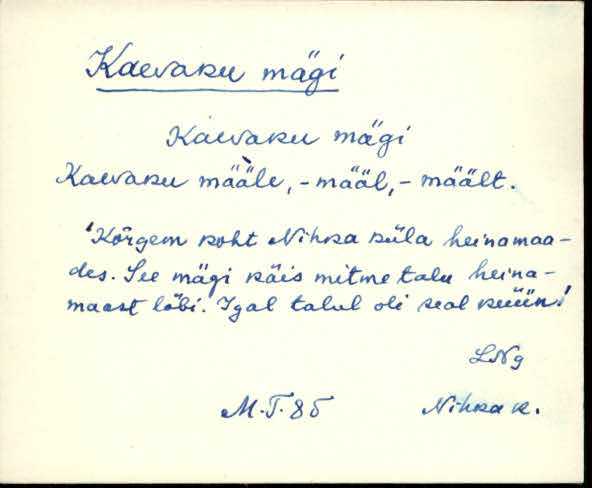 Kaevaku mägi
Kaevaku mägi
Kaevaku mä̀äle, -määl, -mäält.
'Kõrgem koht Nihka küla heinamaa-
des. See mägi käis mitme talu heina-
maast läbi. Igal talul oli seal küün.'
LNg
M.T. 85 Nihka k.